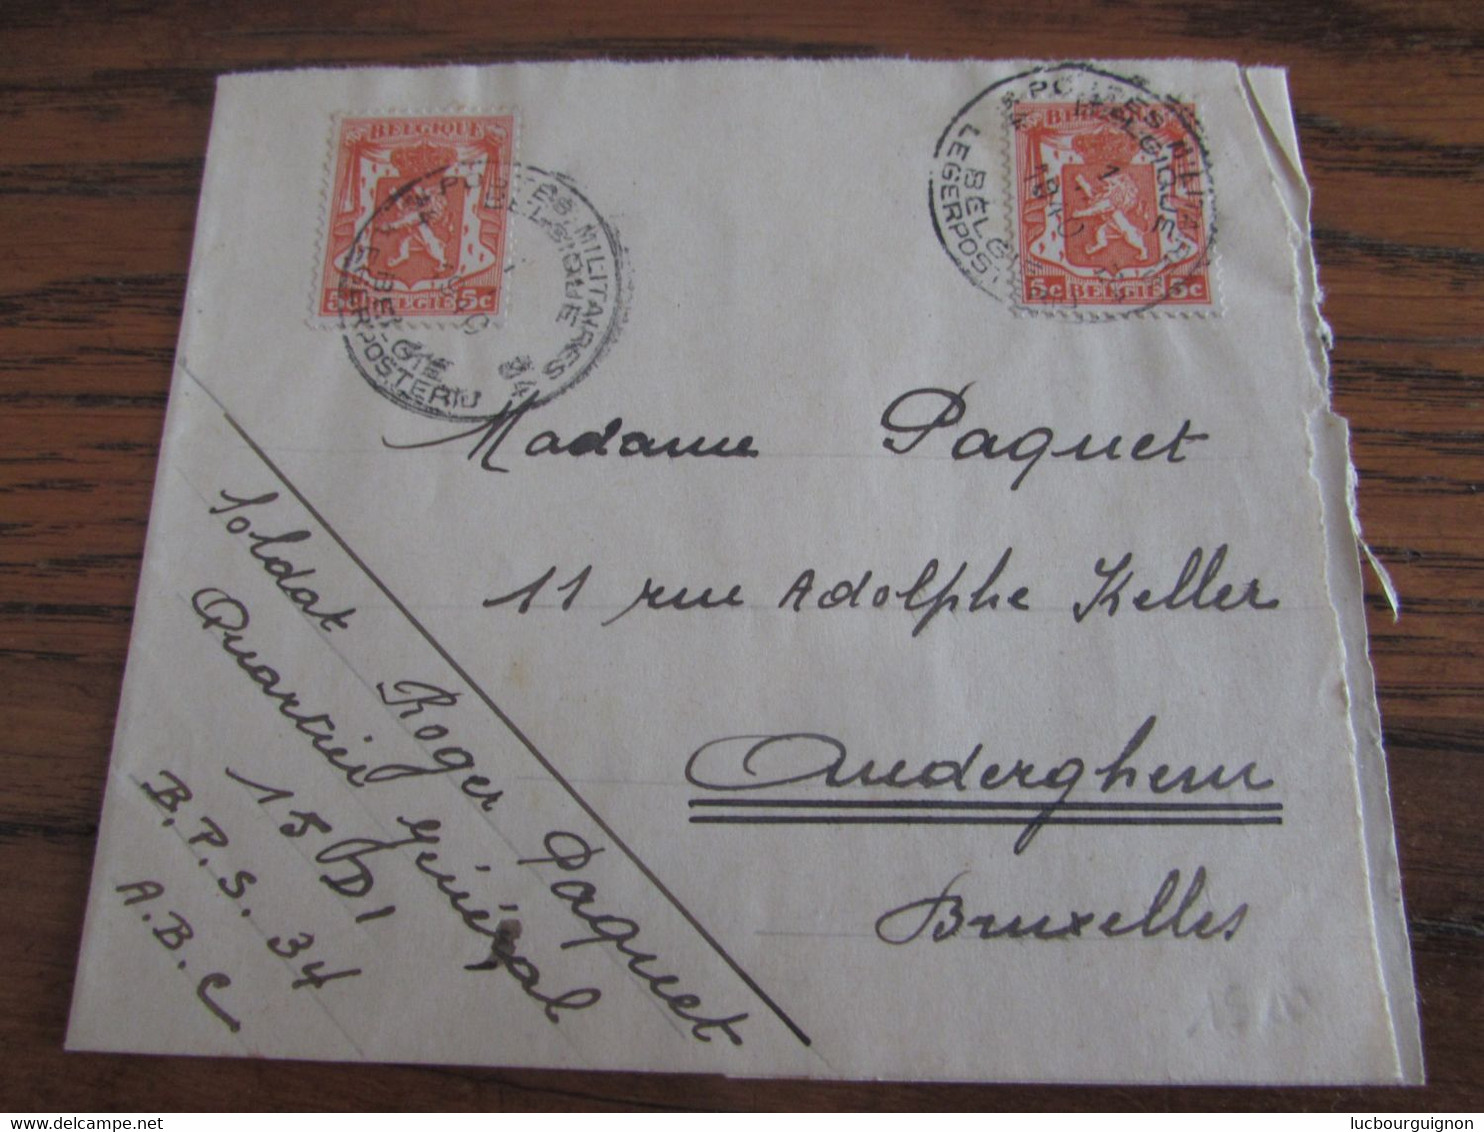 BELGIQUE
5c BELGIË 5c
POSTES MILITAIRES
BELGIQUE
BELGIË
LEGERPOSTERIJ
34
BELGIQUE
5c BELGIË 5c
POSTES MILITAIRES
BELGIQUE
LEGERPOSTERIJ
Madame Paquet
11 rue Adolphe Keller
Auderghem
Bruxelles
Soldat Roger Paquet
Quartier Général
15 DI
B.P.S. 34
A.B.C
delcampe.net
lucbourguignon